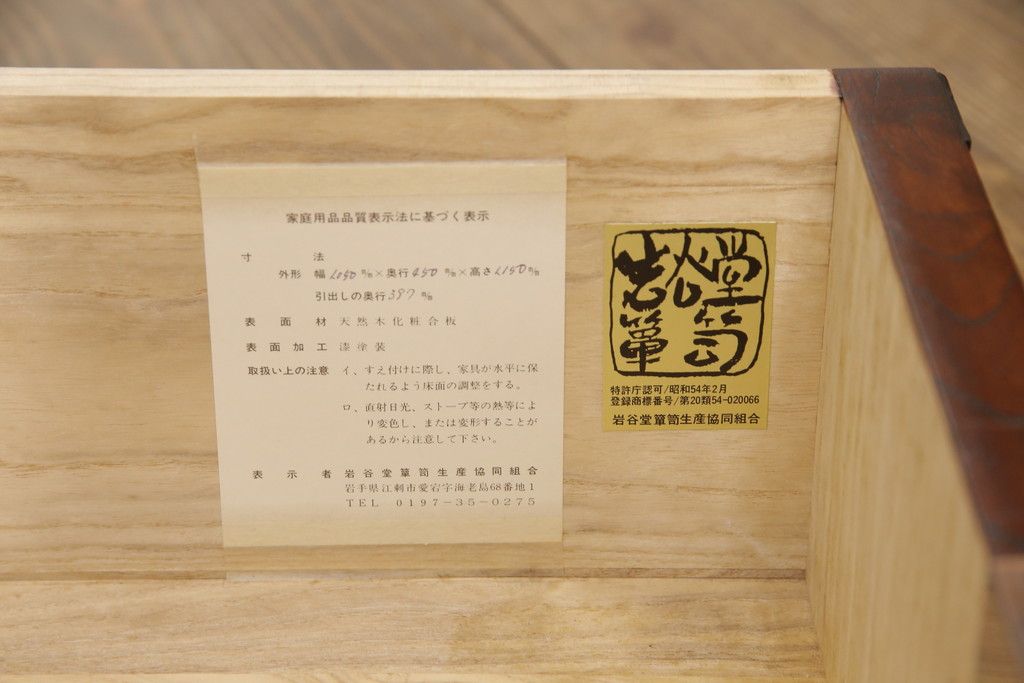 家庭用品品質表示法に基づく表示
寸法
外形 幅 1050 m/m×奥行 450 m/m×高さ 1150 m/m
引出しの奥行 387 m/m
表面材 天然木化粧合板
表面加工 漆塗装
取扱い上の注意 イ、すえ付けに際し、家具が水平に保
たれるよう床面の調整をする。
ロ、直射日光、ストーブ等の熱等によ
り変色し、または変形することが
あるから注意して下さい。
表示者 岩谷堂簞笥生産協同組合
岩手県江刺市愛宕字海老島68番地1
TEL 0197-35-0275
岩谷堂
簞笥
特許庁認可/昭和54年2月
登録商標番号/第20類54-020066
岩谷堂簞笥生産協同組合